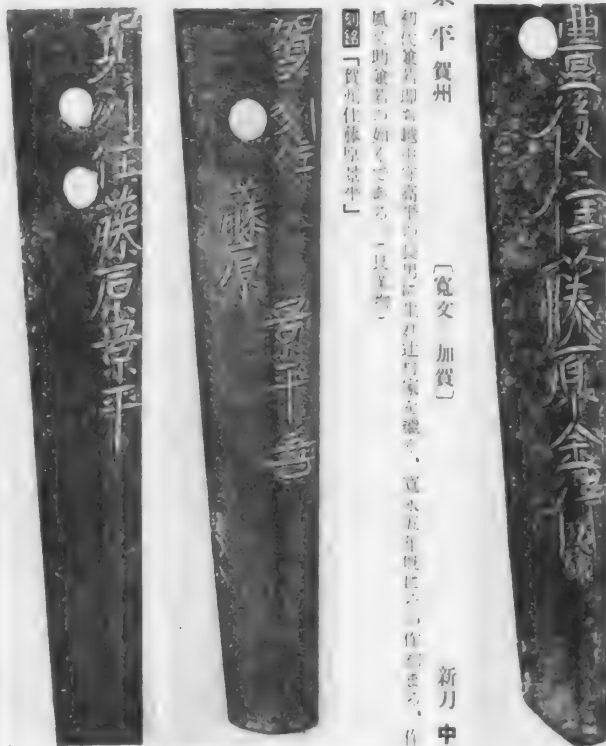 豊後住藤原金
平 賀州 〔寛文 加賀〕 新刀 中
初代兼若即ち越中守高平の長男に生れ辻村家を継ぐ、寛永五年既に 作がある、作
風又助兼若の如くである
刻銘「賀州住藤原景平」
賀州住
藤原
景平
賀州住藤原景平